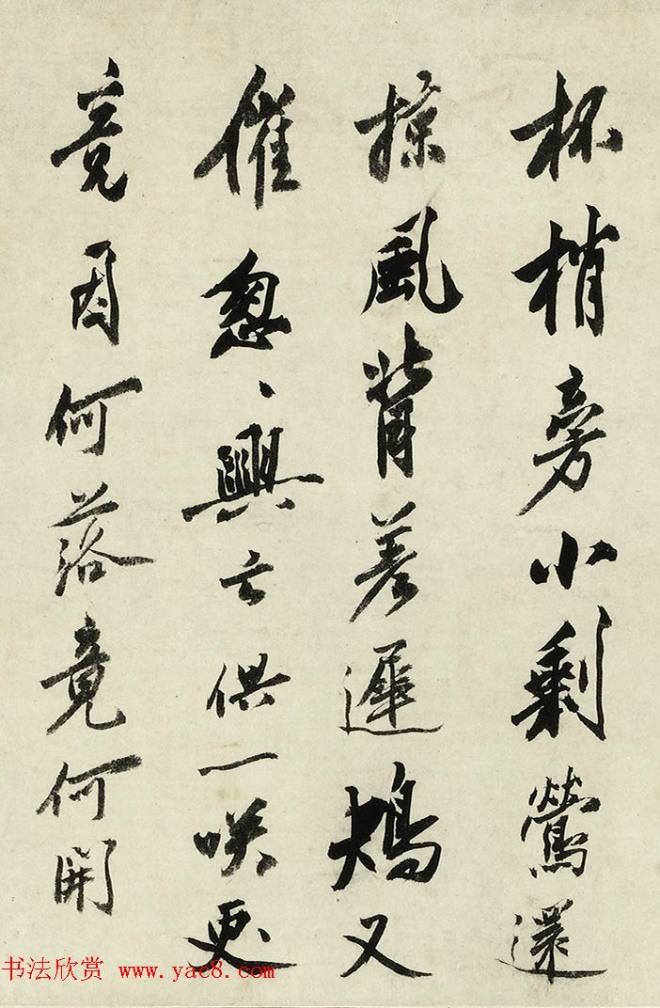 杯梢旁小剩鶯還
掠風背差遲鴂又
催怱〻興亡供一咲更
竟因何落竟何開
书法欣赏 www.yac8.com